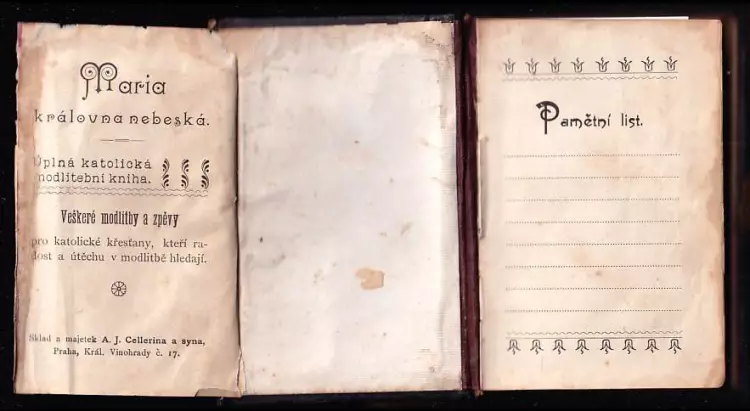 Maria
královna nebeská.
Úplná katolická
modlitební kniha.
Veškeré modlitby a zpěvy
pro katolické křesťany, kteří ra-
dost a útěchu v modlitbě hledají.
Sklad a majetek A. J. Cellerina a syna,
Praha, Král. Vinohrady č. 17.
Pamětní list.